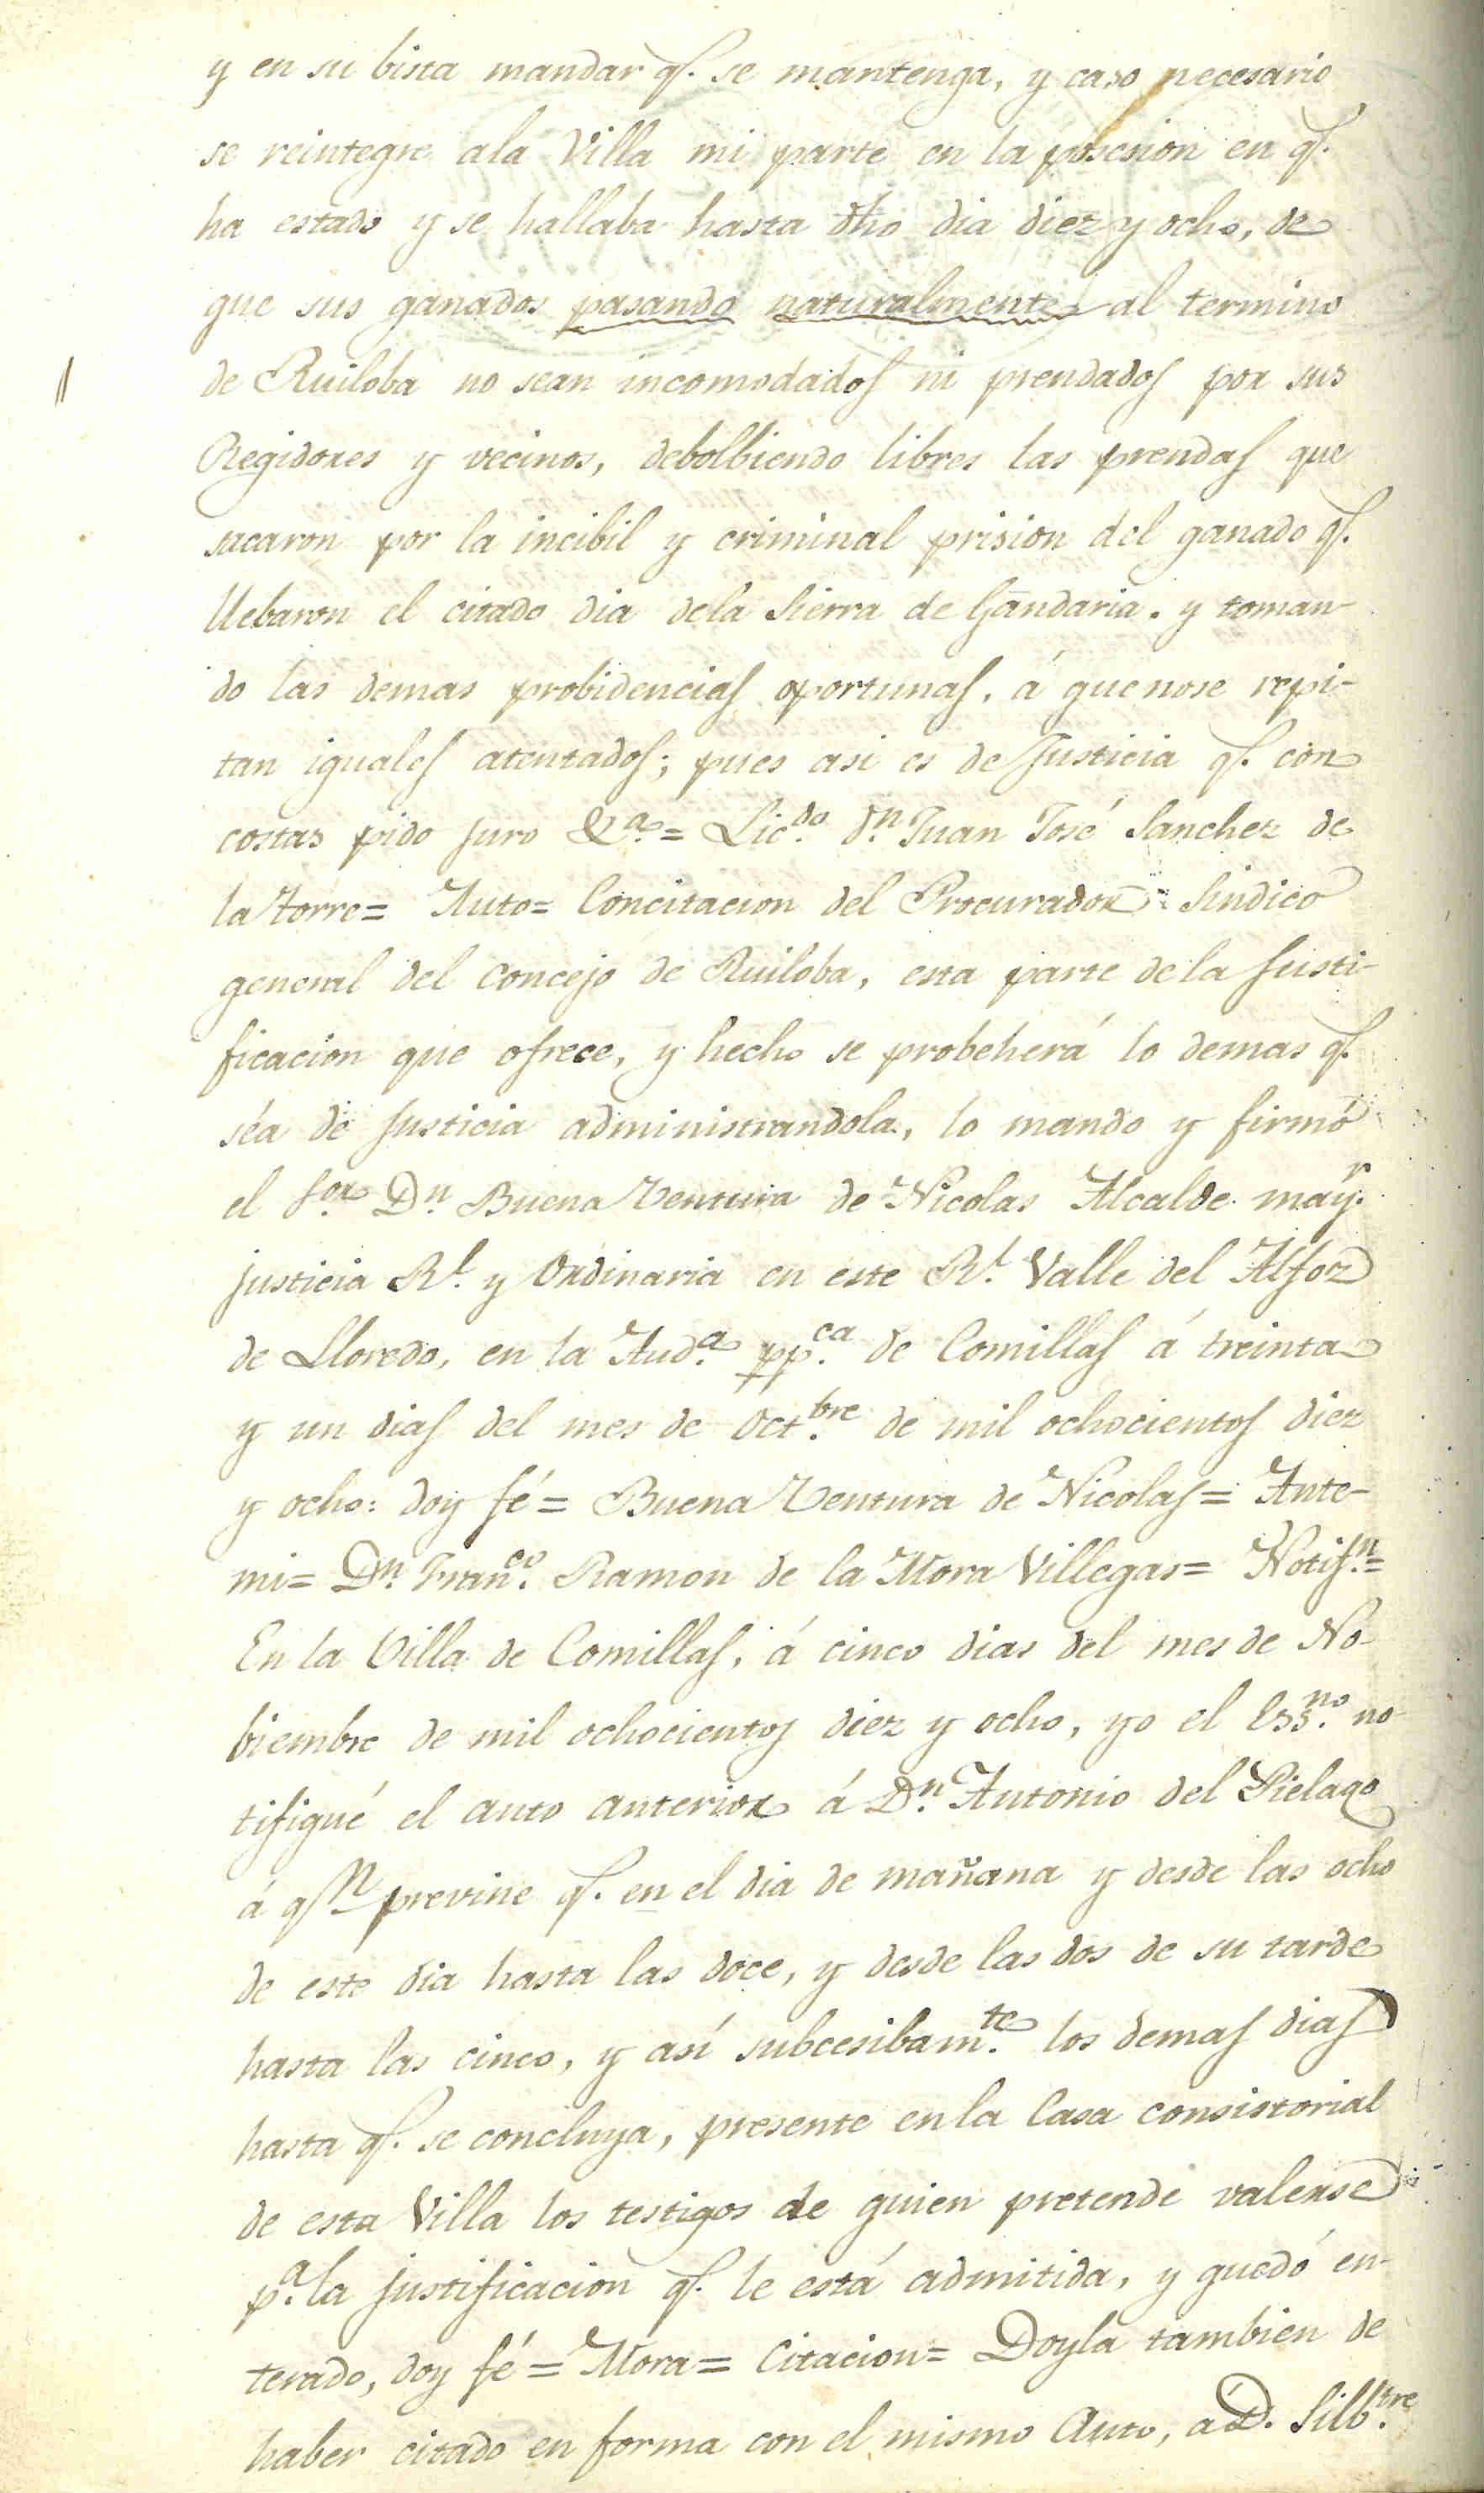 y en su bista mandar q.e se mantenga, y caso necesario
se reintegre ala Villa mi parte en la posesion en q.e
ha estado y se hallaba hasta dho dia diez y ocho, de
que sus ganados pasando naturalmente al termino
de Ruiloba no sean incomodados ni prendados por sus
Regidores y vecinos, debolbiendo libres las prendas que
sacaron por la incibil y criminal prision del ganado q.e
llebaron el citado dia dela Sierra de Gandaria. y toman-
do las demas probidencias oportunas, á quenose repi-
tan iguales atentados; pues asi es de Justicia q.e con
costas pido juro &.a = Lic.do d.n Juan José Sanchez de
la Torre= Auto= Concitacion del Procurador Sindico
general del Concejo de Ruiloba, esta parte de la Justi-
ficacion que ofrece, y hecho se probeherá lo demas q.e
séa de justicia administrandola, lo mando y firmó
el S.or D.n Buena Ventura de Nicolas Alcalde may.r
justicia R.l y Ordinaria en este R.l Valle del Alfoz
de Lloredo, en la Aud.a pp.ca de Comillas á treinta
y un dias del mes de Oct.bre de mil ochocientos diez
y ocho: doy fé= Buena Ventura de Nicolas= Ante-
mi= D.n Fran.co Ramon de la Mora Villegas= Notif.n=
En la Villa de Comillas, á cinco dias del mes de No-
biembre de mil ochocientos diez y ocho, yo el Ess.no no-
tifiqué el auto anterior á D.n Antonio del Pielago
á q.n previne q.e en el dia de mañana y desde las ocho
de este dia hasta las doce, y desde las dos de su tarde
hasta las cinco, y asi subcesibam.te los demas dias
hasta q.e se concluya, presente en la Casa consistorial
de esta Villa los testigos de quien pretende valerse
p.a la justificacion q.e le está admitida, y quedó en-
terado, doy fé= Mora= Citacion= Doyla tambien de
haber citado en forma con el mismo Auto, á D. Silb.tre